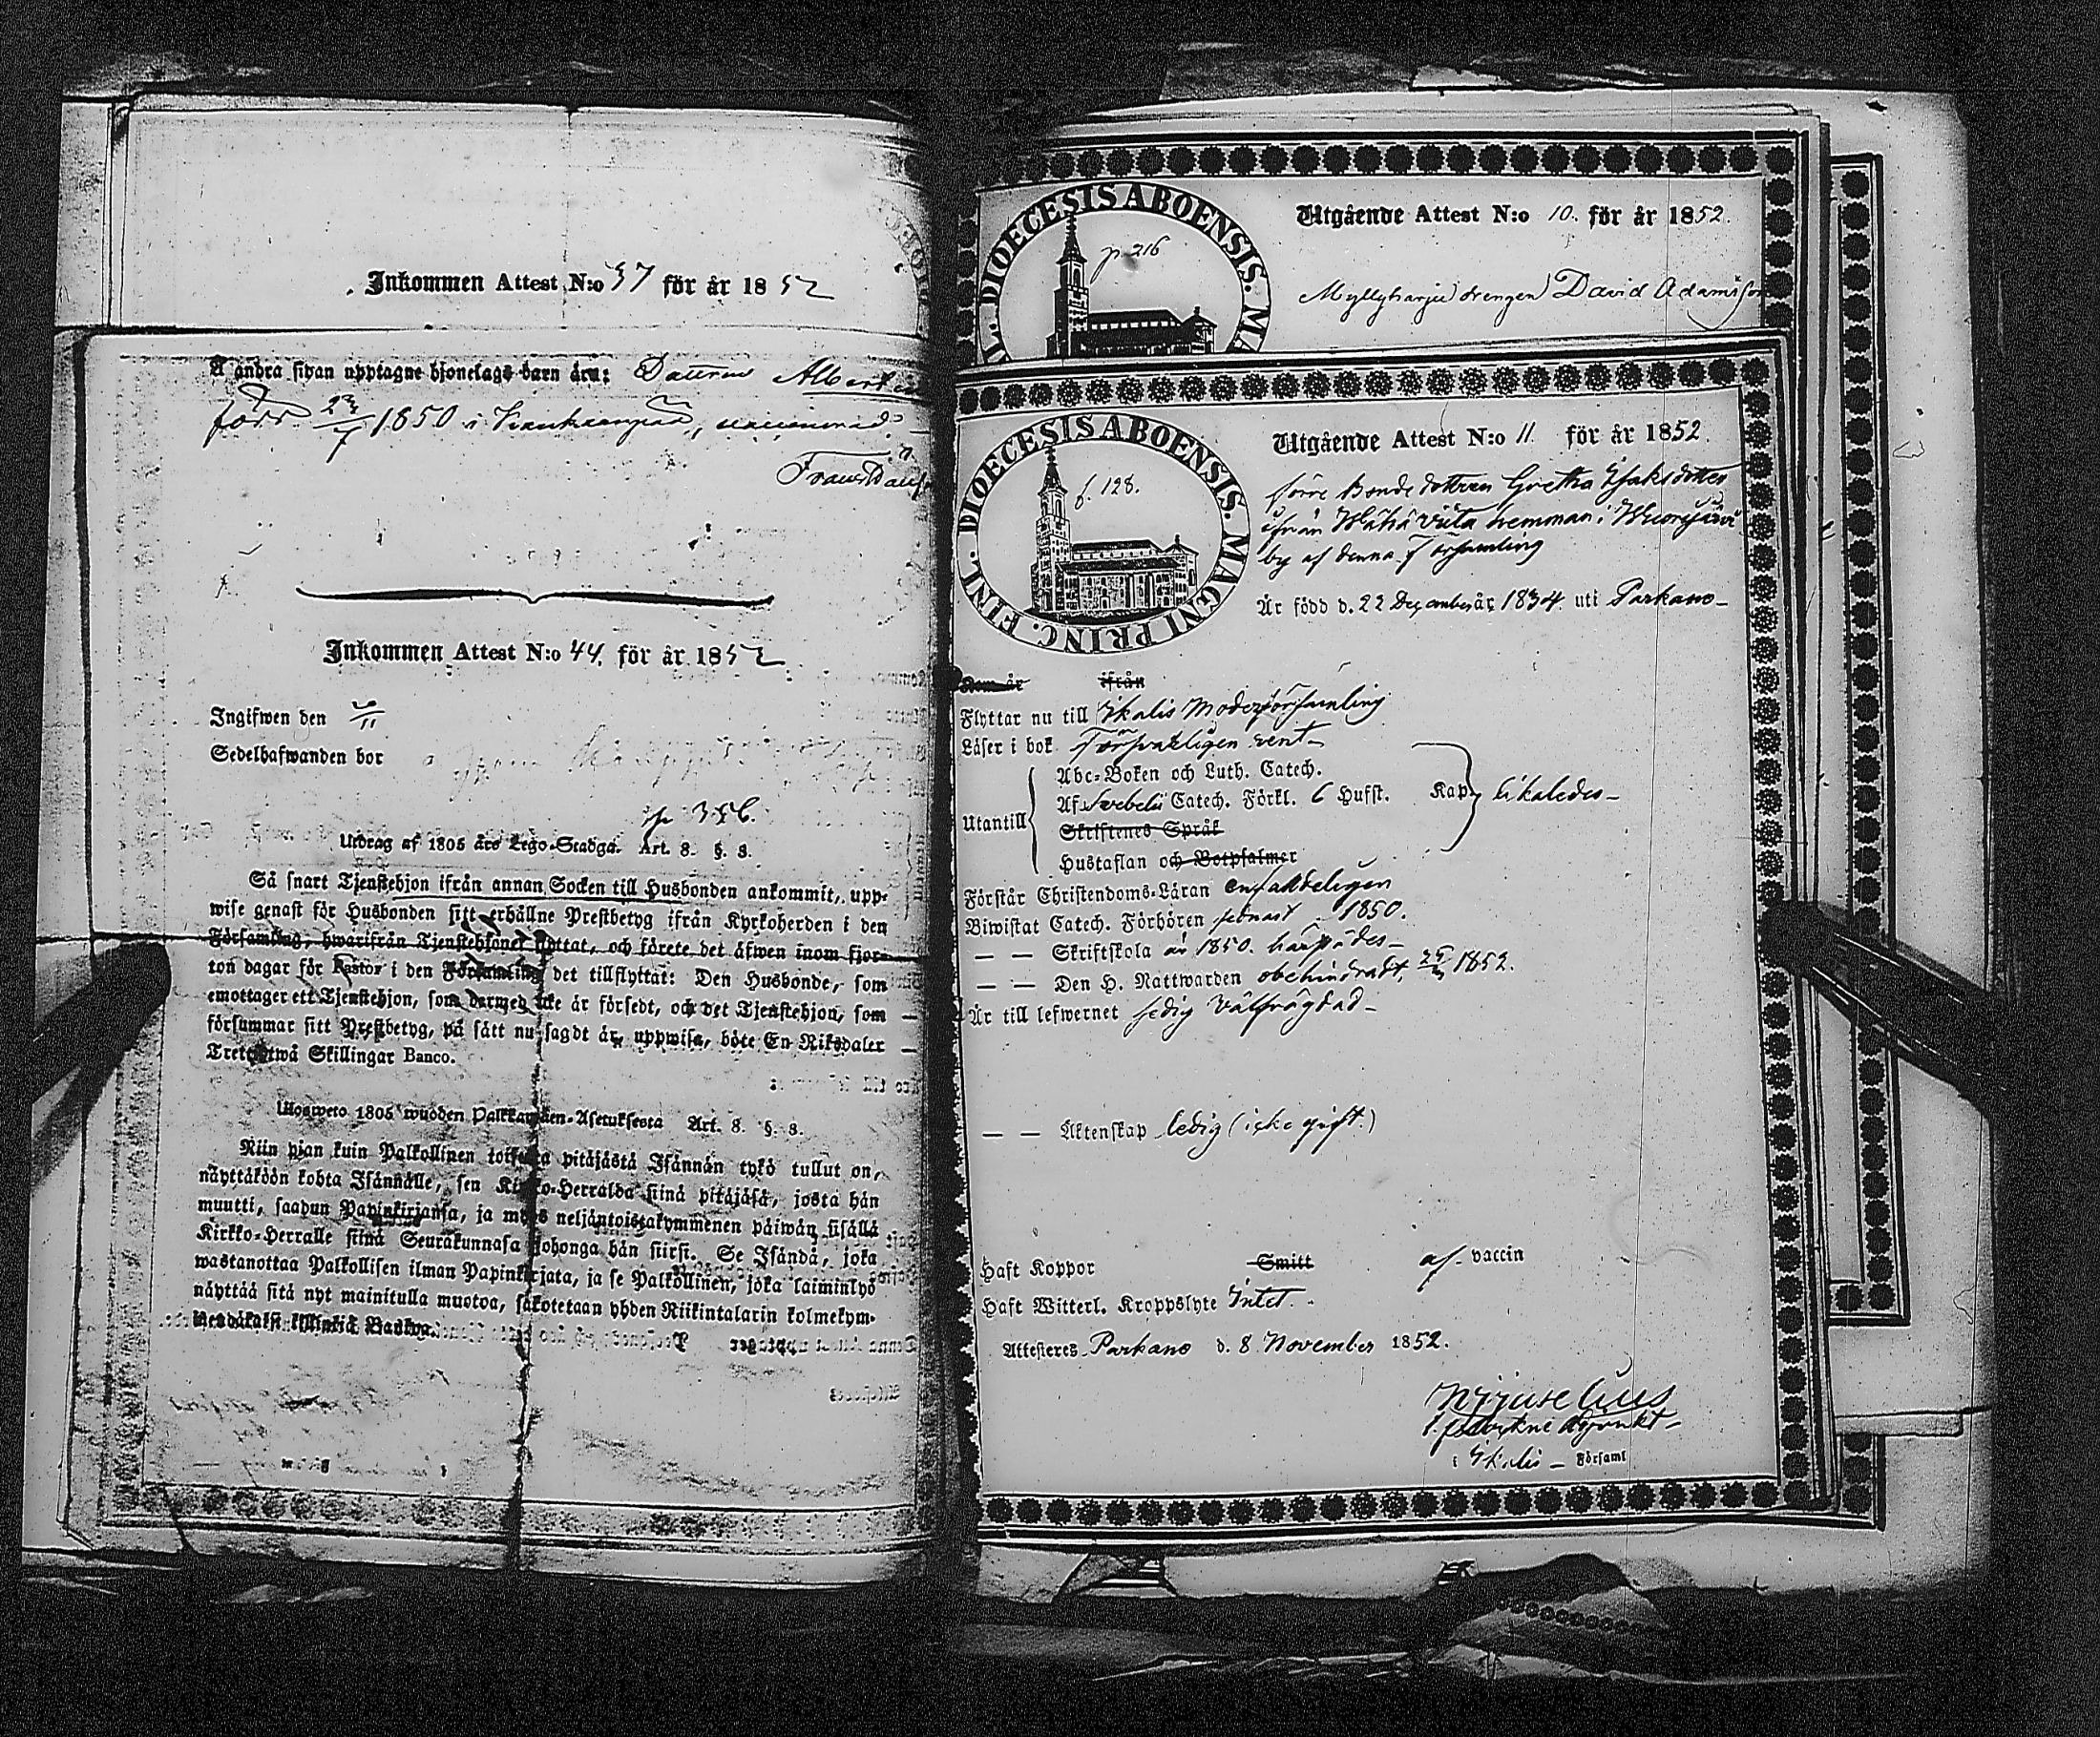 Inkommen Attest N:o 37 för år 1852
Å andra sidan upptagne hjonelags barn äro: Dottren
född 23/7 1850 i
Inkommen Attest N:o 44. för år 1852
Ingifwen den
Sedelhafwanden bor
p 356.
Utdrag af 1805 års Lego-Stadga. Art. 8. §. 8.
Så snart Tjenstehjon ifrån annan Socken till Husbonden ankommit, upp-
wise genast för Husbonden sitt erhållne Prestbetyg ifrån Kyrkoherden i den
Församling, hwarifrån Tjenstehjonet flyttat, och förete det äfwen inom fjor-
ton dagar för Pastor i den Församling det tillflyttat: Den Husbonde, som
emottager ett Tjenstehjon, som dermed icke är försedt, och det Tjenstehjon, som
försummar sitt Prestbetyg, på sätt nu sagdt är, uppwisa, böte En Riksdaler
Tretiotwå Skillingar Banco.
Ulosweto 1805 wuoden Palkkawäen-Asetuksesta Art. 8. §. 8.
Niin pian kuin Palkollinen toisesta pitäjästä Isännän tykö tullut on,
näyttäköön kohta Isännälle, sen Kirkko-Herralda siinä pitäjäsä, josta hän
muutti, saadun Papinkirjansa, ja myös neljäntoistakymmenen päiwän sisällä
Kirkko-Herralle siinä Seurakunnasa johonga hän siirsi. Se Isändä, joka
wastanottaa Palkollisen ilman Papinkirjata, ja se Palkollinen, joka laiminlyö
näyttää sitä nyt mainitulla muotoa, sakotetaan yhden Riikintalarin kolmekym-
mendäkaksi killinkiä Baskoa.
DIOECESIS ABOENSIS.
p. 216
Utgående Attest N:o 10. för år 1852.
Myllyharju drengen David Adamsson
DIOECESIS ABOENSIS. MAGNI PRINC. FINL.
f. 128.
Utgående Attest N:o 11. för år 1852.
förre Bonde dottren Gretha Isaksdotter
ifrån hemman i
by af denna Församling
Är född d. 22 December år 1834. uti Parkano
Kom år ifrån
Flyttar nu till Ikalis Moderförsamling
Läser i bok Försvarligen rent
Utantill
Abc-Boken och Luth. Catech.
Af Svebelii Catech. Förkl. 6 Hufst. Kap. likaledes
Skriftenes Språk
Hustaflan och Botpsalmer
Förstår Christendoms-Läran enfaldeligen
Biwistat Catech. Förhören senast 1850.
— — Skriftskola år 1850.
— — Den H. Nattwarden obehindradt, 1852.
Är till lefwernet sedig välfrägdad
— — Äktenskap ledig (icke gift.)
Haft Koppor Smitt af vaccin
Haft Witterl. Kroppslyte Intet.
Attesteres Parkano d. 8 November 1852.
i Ikalis Församl